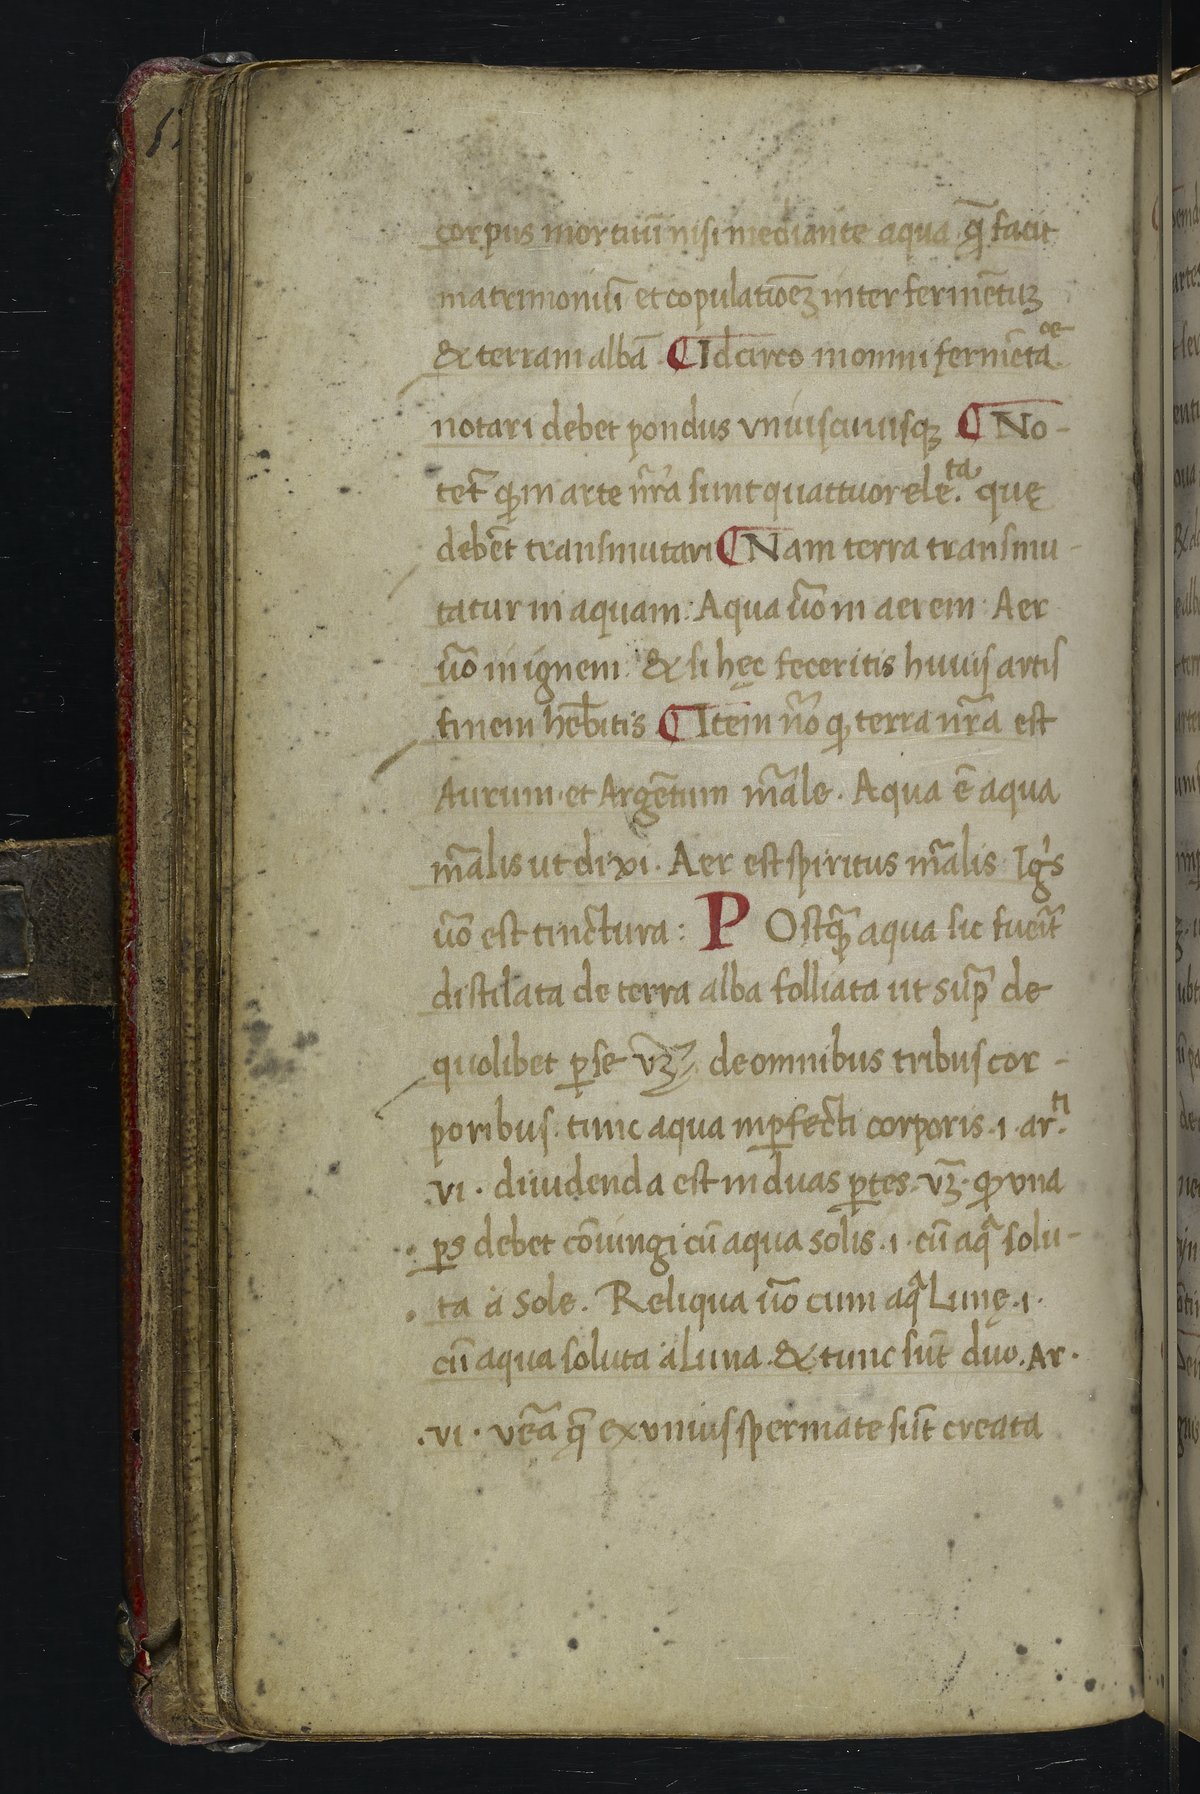 corpus mortuū nisi mediante aqua q̄ facit
matrimoniū et copulatiōeʒ inter fermētuʒ
& terram albā. ¶ Idcirco in omni fermēta.ᵒᵉ
notari debet pondus vniuscuiusqʒ ¶ No-
tet̄ ꝙ in arte nr̄a sunt quattuor ele.ᵗᵃ que
debēt transmutari ¶ Nam terra transmu-
tatur in aquam: Aqua ūo in aerem· Aer
ūo in ignem. & si hęc feceritis huius artis
finem hēbitis ¶ Item nō ꝙ terra nr̄a est
Aurum· et Argētum māle. Aqua ē aqua
mālis ut dixi. Aer est spiritus mālis Ig's
ūo est tinctura: P Ostꝙ̄ aqua sic fuerit̄
distilata de terra alba folliata ut sup̄ de
quolibet ꝑ se vʒ. de omnibus tribus cor-
poribus. tunc aqua inꝑfecti corporis .i. ar.ᵗⁱ
.vi. diuidenda est in duas ꝑtes. vʒ. ꝙ vna
ꝑs debet cōiungi cū aqua solis .i. cū aq̄ solu-
ta a sole. Reliqua ūo cum aq̄ Lunę .i.
cū aqua soluta a Luna. & tunc sūt duo. Ar.
.vi. vēa q̄ ex vnius spermate sūt creata